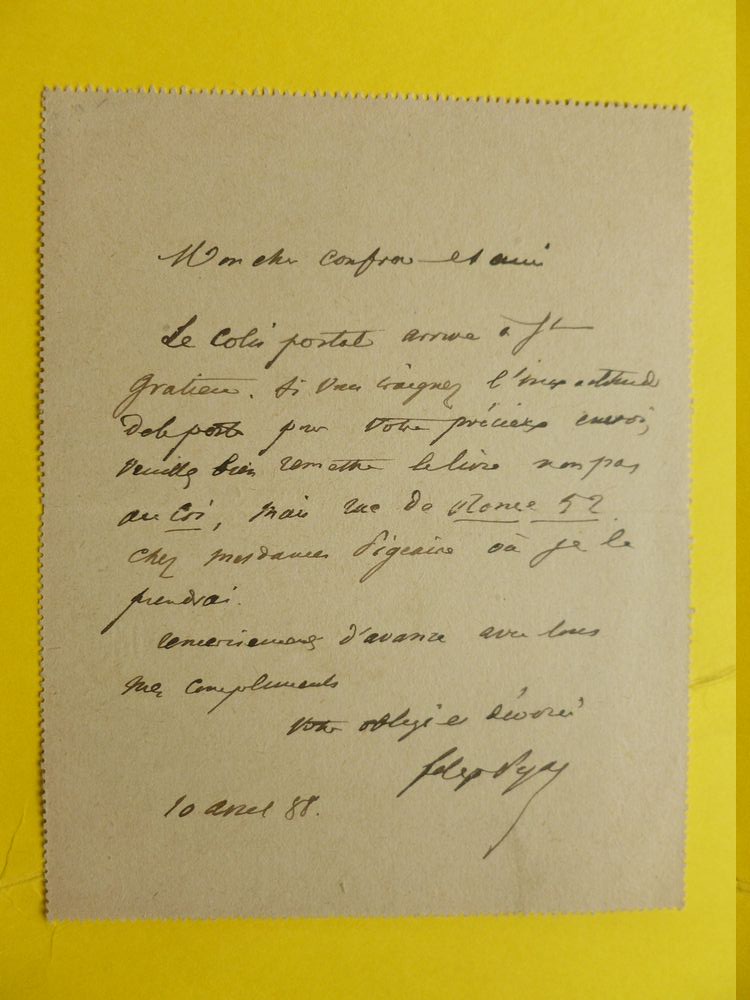 Mon cher confrère et ami
Le Colis postal arrive à St
Gratien. Si vous craignez l'inexactitude
de la poste pour votre précieux envoi,
veuillez bien remettre le livre non pas
au Cri, mais rue de Rome 52
chez mesdames Pigeaire où je le
prendrai.
remerciements d'avance avec tous
mes compliments
votre obligé et dévoué
Felix Pyat
10 avril 88.